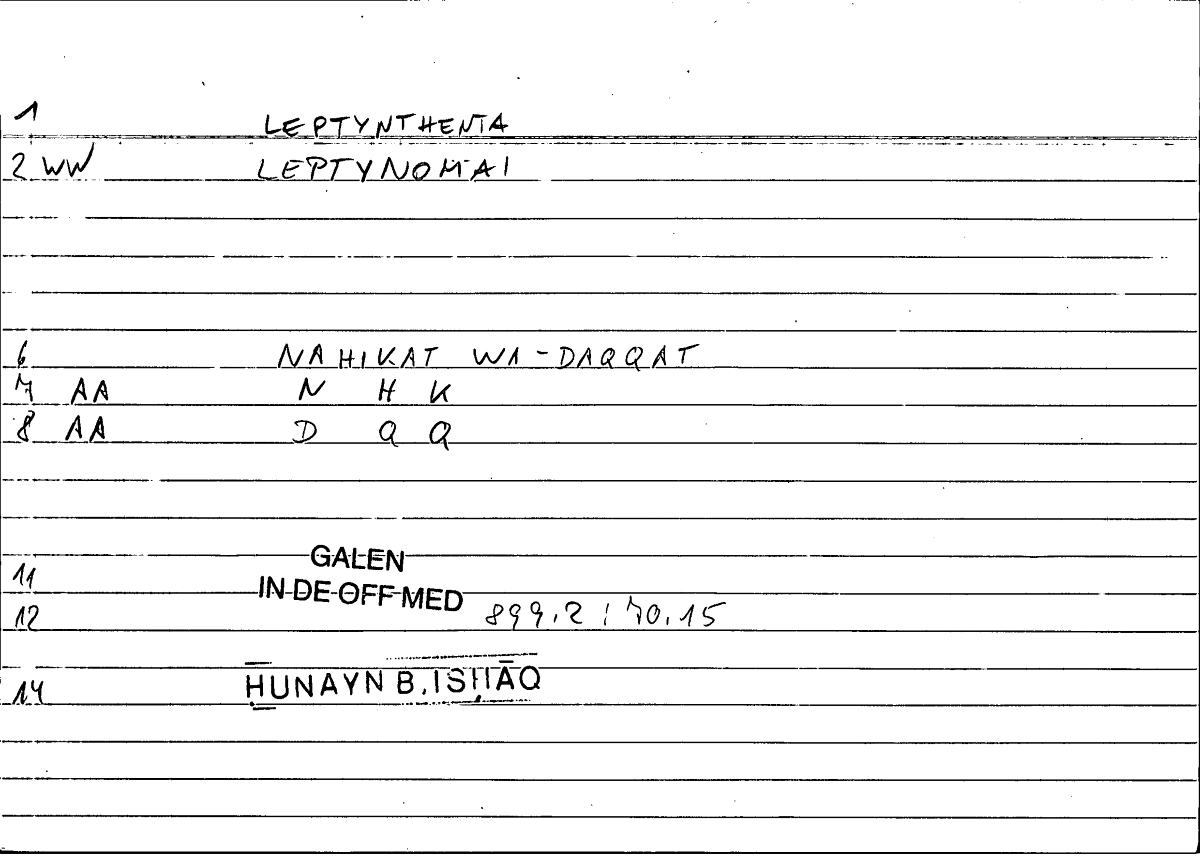 1 LEPTYNTHENTA
2 WW LEPTYNOMAI
6 NAHIKAT WA-DAQQAT
7 AA N H K
8 AA D Q Q
11 GALEN
12 IN DE OFF MED 899.2 : 70.15
14 ḤUNAYN B. ISḤĀQ